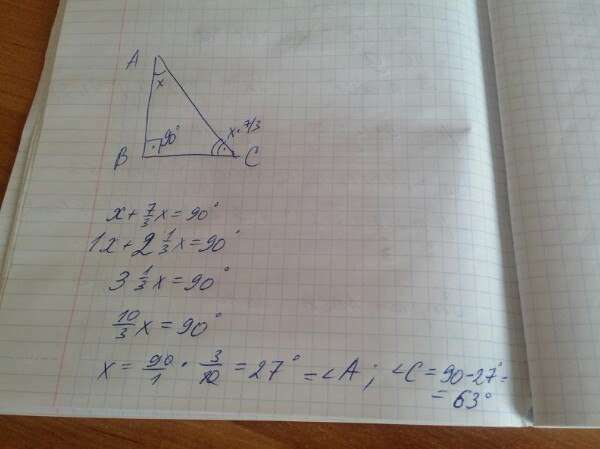 A
x
B 90° x·7/3 C
x + 7/3 x = 90°
1x + 2 1/3 x = 90°
3 1/3 x = 90°
10/3 x = 90°
x = 90/1 · 3/10 = 27° = ∠A ; ∠C = 90 - 27° =
= 63°